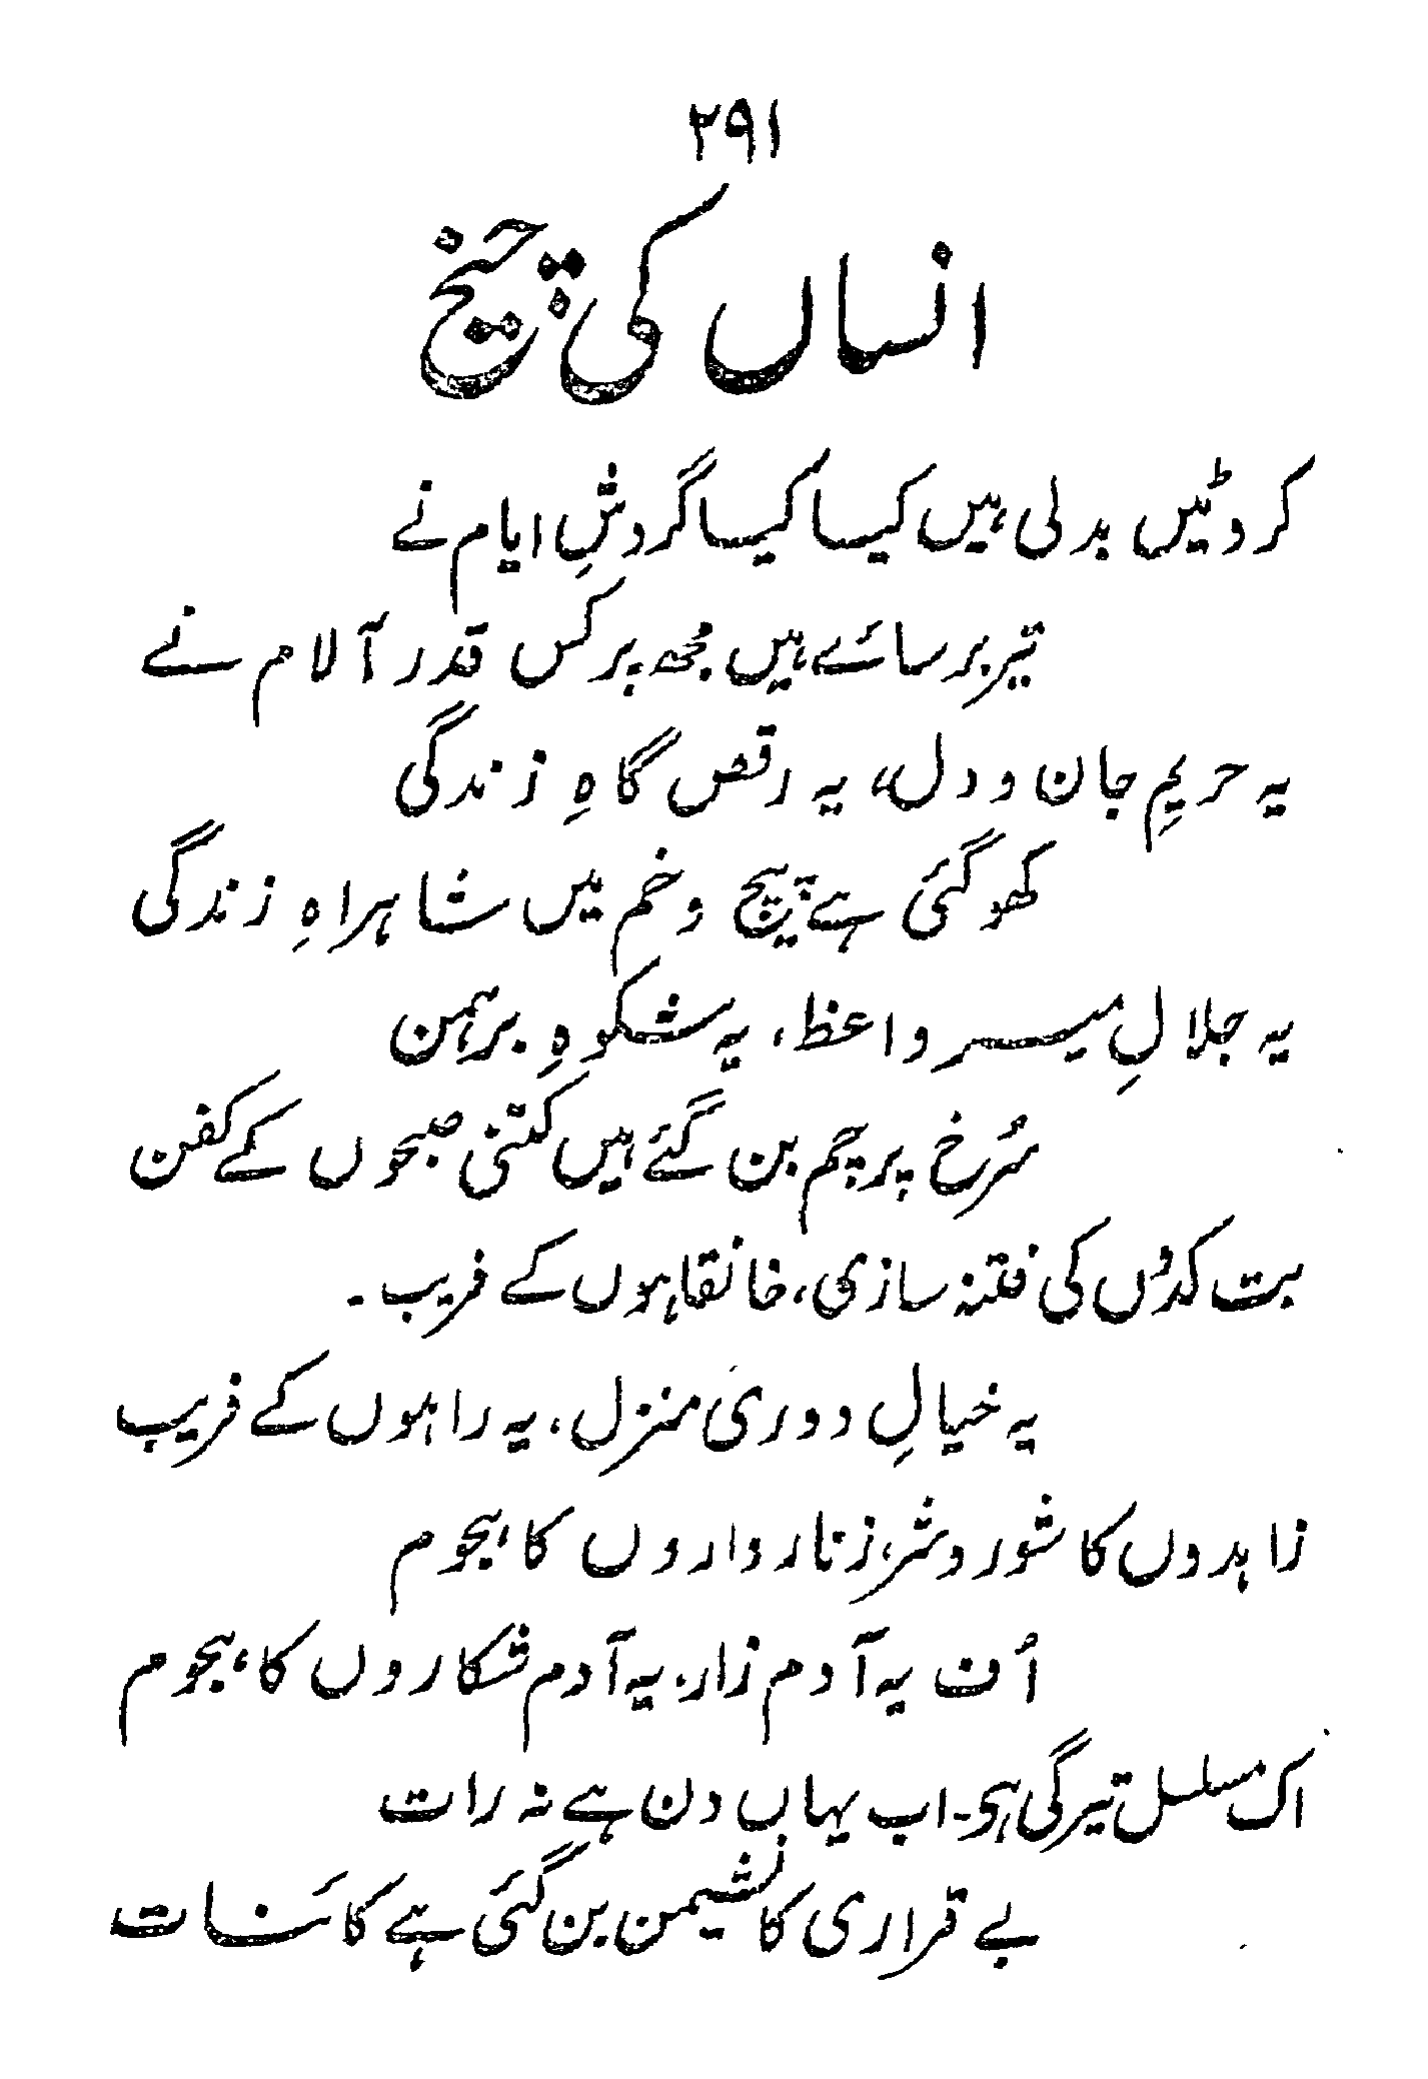 ۲۹۱
انساں کی چیخ
کروٹیں بدلی ہیں کیسا کیسا گردشِ ایام نے
تیر برسائے ہیں مجھ پر کس قدر آلام نے
یہ حریمِ جان و دل، یہ رقص گاہِ زندگی
کھو گئی ہے پیچ و خم میں شاہراہِ زندگی
یہ جلالِ میر و اعظ، یہ شکوہِ برہمن
سُرخ پرچم بن گئے ہیں کتنی صبحوں کے کفن
بت کدوں کی فتنہ سازی، خانقاہوں کے فریب ۔
یہ خیالِ دوریٔ منزل، یہ راہوں کے فریب
زاہدوں کا شور و شر، زنار داروں کا ہجوم
اُف یہ آدم زار، یہ آدم شکاروں کا ہجوم
اک مسلسل تیرگی ہو۔ اب یہاں دن ہے نہ رات
بے قراری کا نشیمن بن گئی ہے کائنات